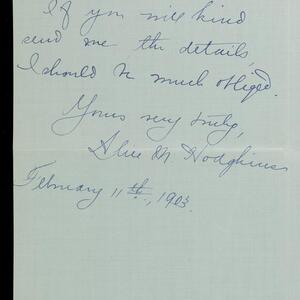 If you will kind
send me the details,
I should be much obliged.
Yours very truly,
Alice M. Hodgkins
February 11th, 1903.